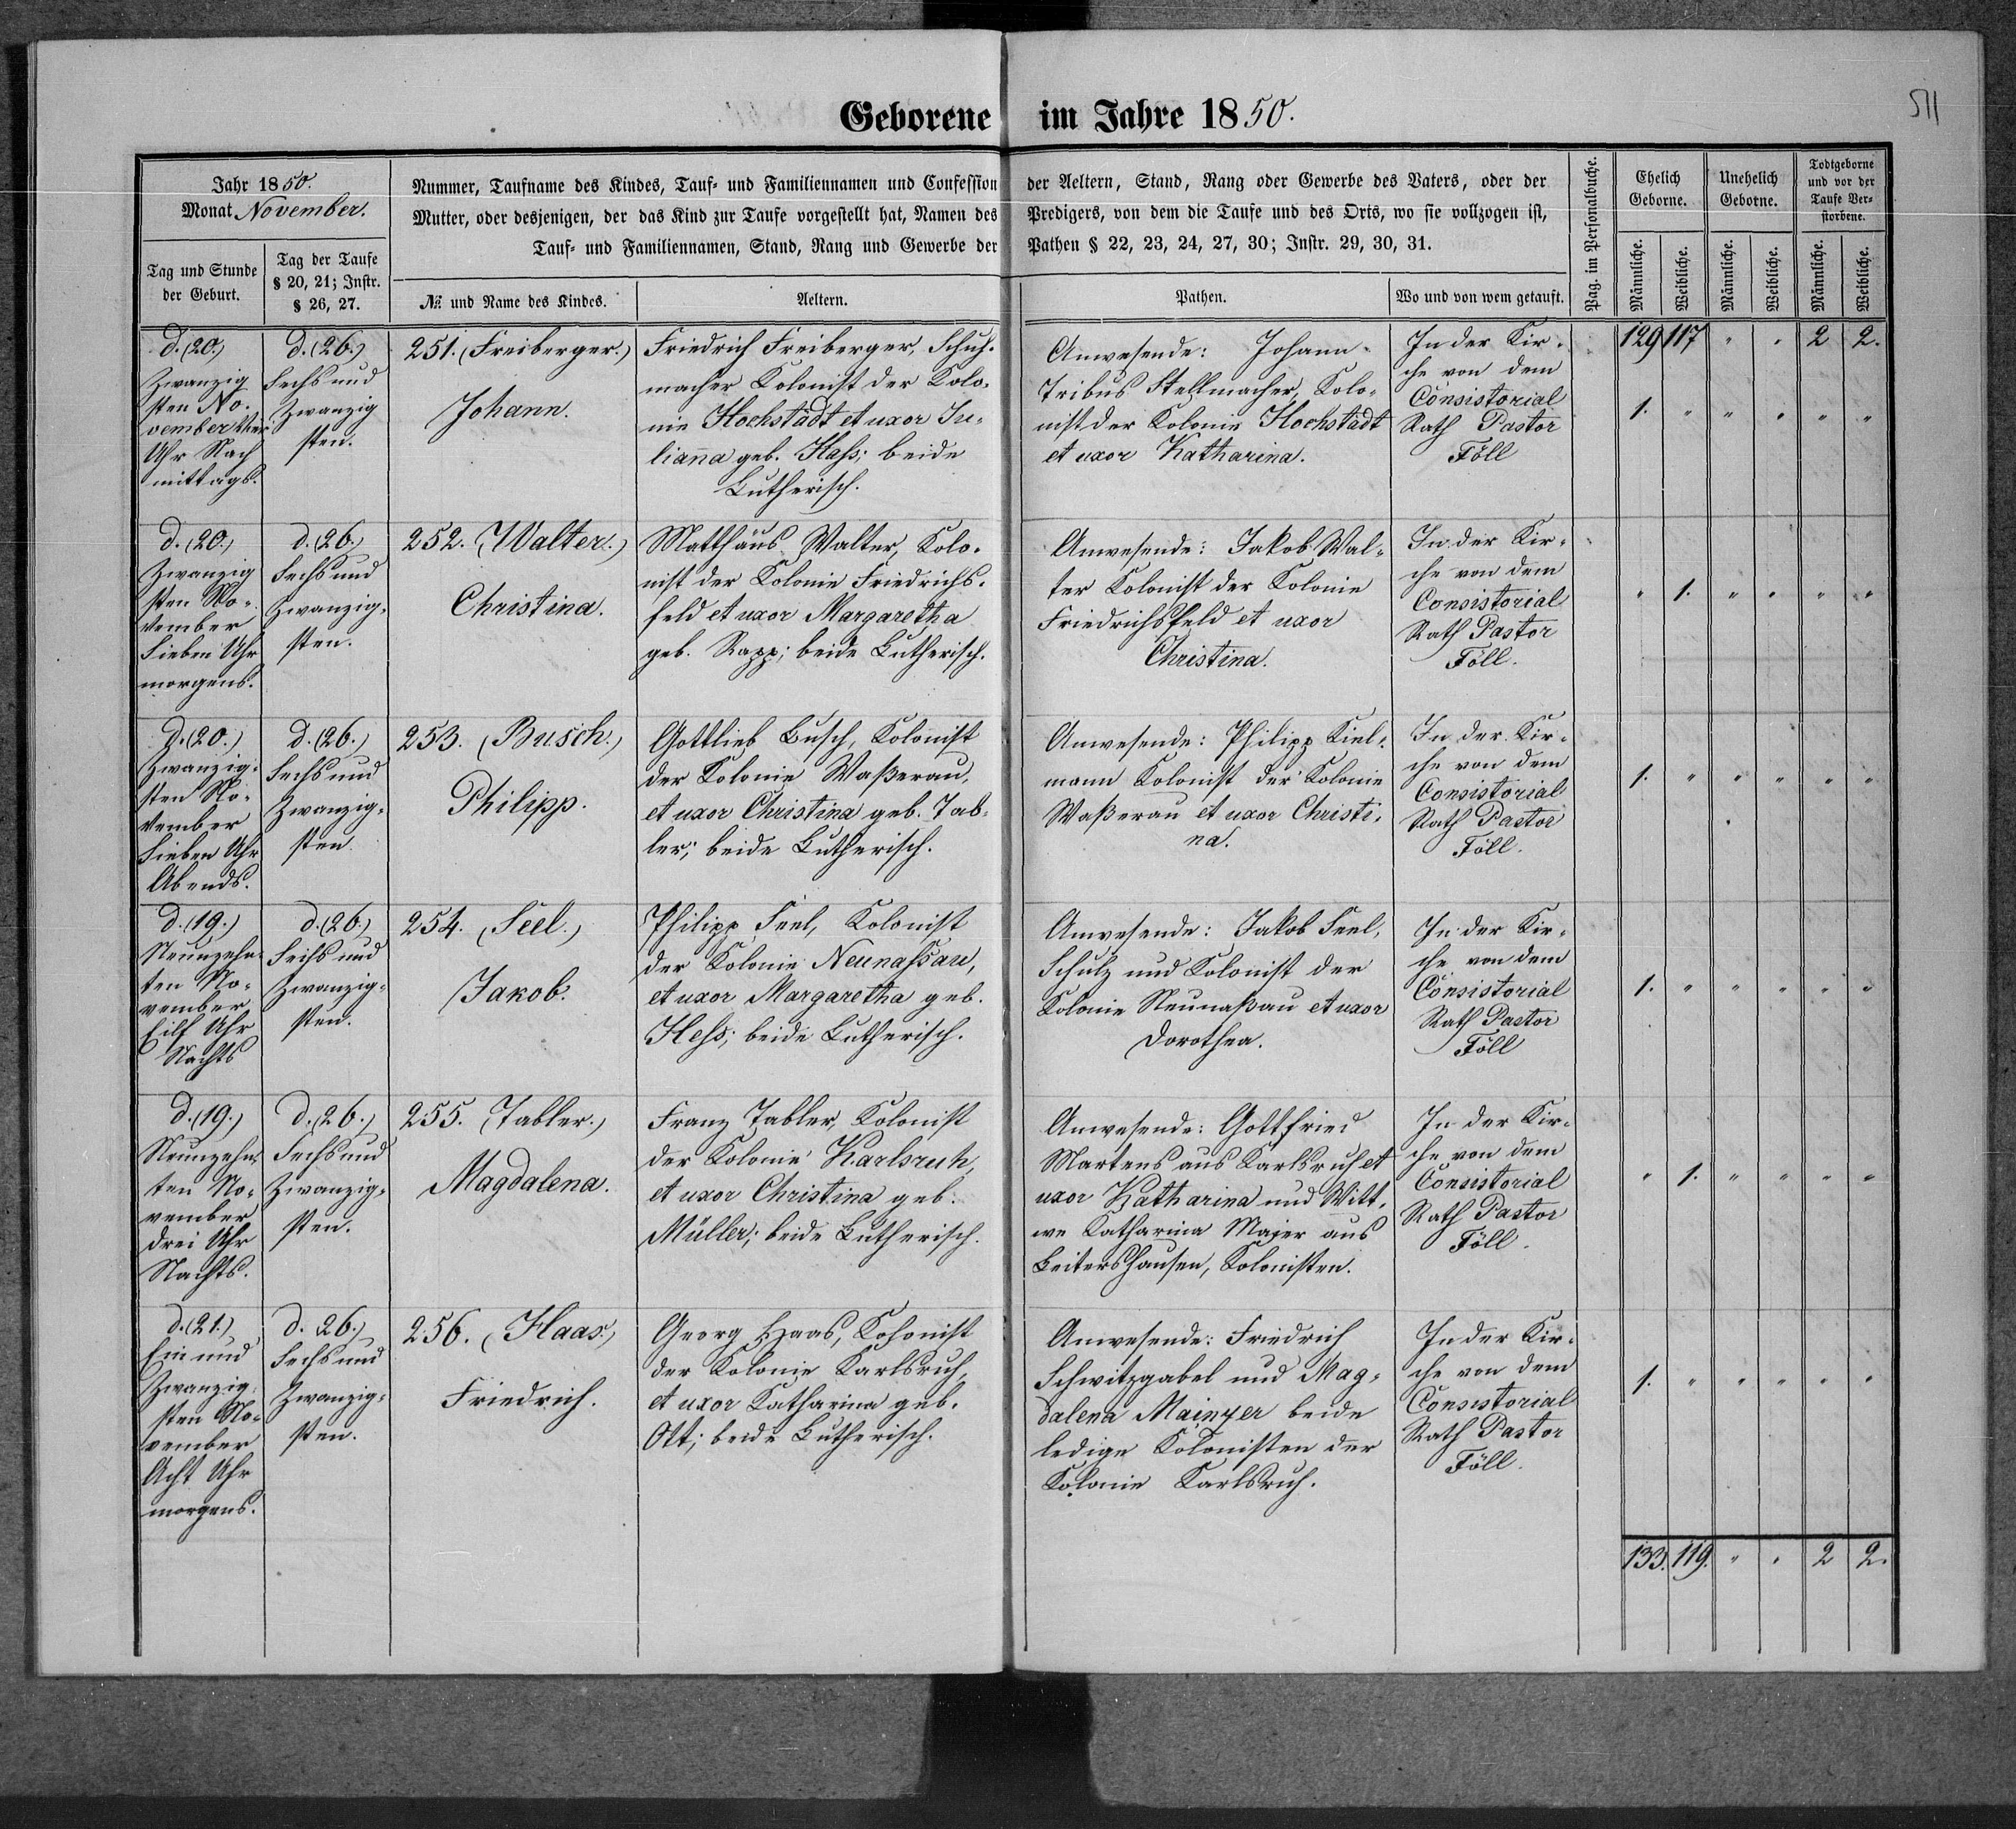 511
Geborene im Jahre 1850.
Jahr 1850.
Monat November.
Tag und Stunde
der Geburt.
Tag der Taufe
§ 20, 21; Instr.
§ 26, 27.
Nummer, Taufname des Kindes, Tauf- und Familiennamen und Confession der Aeltern, Stand, Rang oder Gewerbe des Vaters, oder der
Mutter, oder desjenigen, der das Kind zur Taufe vorgestellt hat, Namen des Predigers, von dem die Taufe und des Orts, wo sie vollzogen ist,
Tauf- und Familiennamen, Stand, Rang und Gewerbe der Pathen § 22, 23, 24, 27, 30; Instr. 29, 30, 31.
№ und Name des Kindes.
Aeltern.
Pathen.
Wo und von wem getauft.
Pag. im Personalbuche.
Ehelich
Geborne.
Unehelich
Geborne.
Todtgeborne
und vor der
Taufe Ver-
storbene.
Männliche.
Weibliche.
Männliche.
Weibliche.
Männliche.
Weibliche.
129 117 " " 2 2.
d. (20.)
Zwanzig
sten No-
vember
Uhr Nach
mittags.
d. (26.)
Sechs und
Zwanzig
sten.
251. (Freiberger.)
Johann.
Friedrich Freiberger, Schuh-
macher Kolonist der Kolo-
nie Hochstädt et uxor Ju-
lianna geb. Hass; beide
Lutherisch.
Anwesende: Johann
Tribus Stellmacher, Kolo-
nist der Kolonie Hochstädt
et uxor Katharina.
In der Kir-
che von dem
Consistorial
Rath Pastor
Föll
1. " " " " "
d. (20.)
Zwanzig
sten No-
vember
Sieben Uhr
morgens.
d. (26.)
Sechs und
Zwanzig-
sten.
252. (Walter.)
Christina.
Matthäus Walter, Kolo-
nist der Kolonie Friedrichs-
feld et uxor Margaretha
geb. Rapp; beide Lutherisch.
Anwesende: Jakob Wal-
ter Kolonist der Kolonie
Friedrichsfeld et uxor
Christina.
In der Kir-
che von dem
Consistorial
Rath Pastor
Föll.
" 1. " " " "
d. (20.)
Zwanzig-
sten No-
vember
Sieben Uhr
Abends.
d. (26.)
Sechs und
Zwanzig-
sten.
253. (Busch.)
Philipp.
Gottlieb Busch, Kolonist
der Kolonie Waßerau,
et uxor Christina geb. Tab-
ler; beide Lutherisch.
Anwesende: Philipp Kiel-
mann Kolonist der Kolonie
Waßerau et uxor Christi-
na.
In der Kir-
che von dem
Consistorial
Rath Pastor
Föll.
1. " " " " "
d. (19.)
Neunzehn-
ten No-
vember
Eilf Uhr
Nachts
d. (26.)
Sechs und
Zwanzig-
sten.
254. (Seel.)
Jakob.
Philipp Seel, Kolonist
der Kolonie Neunassau,
et uxor Margaretha geb.
Hess; beide Lutherisch.
Anwesende: Jakob Seel,
Schulz und Kolonist der
Kolonie Neunaßau et uxor
Dorothea.
In der Kir-
che von dem
Consistorial
Rath Pastor
Föll
1. " " " " "
d. (19.)
Neunzehn-
ten No-
vember
drei Uhr
Nachts.
d. (26.)
Sechs und
Zwanzig-
sten.
255. (Tabler.)
Magdalena.
Franz Tabler, Kolonist
der Kolonie Karlsruh,
et uxor Christina geb.
Müller; beide Lutherisch.
Anwesende: Gottfried
Martens aus Karlsruh et
uxor Katharina und Witt-
we Katharina Majer aus
Leitershausen, Kolonisten.
In der Kir-
che von dem
Consistorial
Rath Pastor
Föll.
" 1. " " " "
d. (21.)
Ein und
Zwanzig-
sten No-
vember
Acht Uhr
morgens.
d. 26.)
Sechs und
Zwanzig-
sten.
256. (Haas.)
Friedrich.
Georg Haas, Kolonist
der Kolonie Karlsruh,
et uxor Katharina geb.
Ott; beide Lutherisch.
Anwesende: Friedrich
Schwitzgabel und Mag-
dalena Mainzer beide
ledige Kolonisten der
Kolonie Karlsruh.
In der Kir-
che von dem
Consistorial
Rath Pastor
Föll.
1. " " " " "
133. 119. " " 2 2.